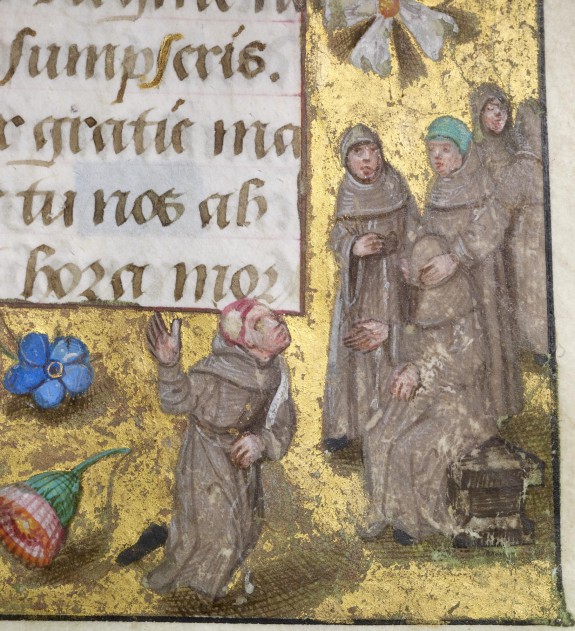 sumpseris.
r gratie ma
tu nos ab
hora mor